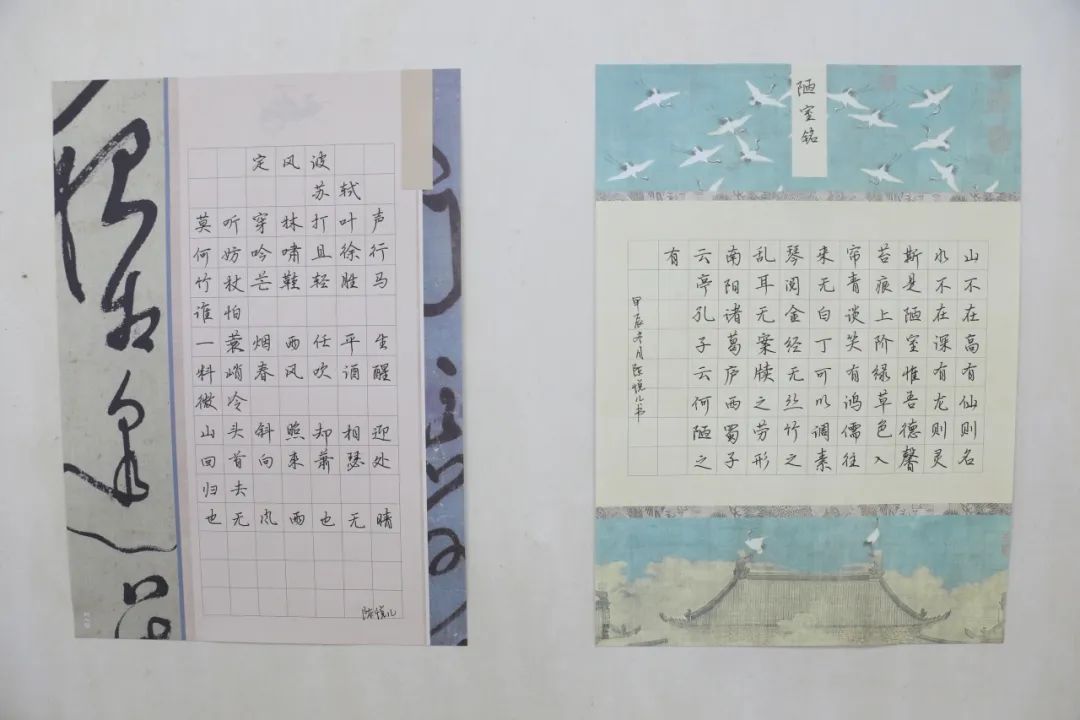 定风波
苏轼
莫听穿林打叶声
何妨吟啸且徐行
竹杖芒鞋轻胜马
谁怕
一蓑烟雨任平生
料峭春风吹酒醒
微冷
山头斜照却相迎
回首向来萧瑟处
归去
也无风雨也无晴
陈悦儿
陋室铭
山不在高有仙则名
水不在深有龙则灵
斯是陋室惟吾德馨
苔痕上阶绿草色入
帘青谈笑有鸿儒往
来无白丁可以调素
琴阅金经无丝竹之
乱耳无案牍之劳形
南阳诸葛庐西蜀子
云亭孔子云何陋之
有
甲辰冬月陈悦儿书